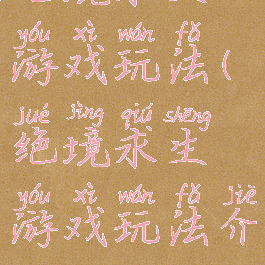 yóu xì wán fǎ
游戏玩法(
jué jìng qiú shēng
绝境求生
yóu xì wán fǎ jiè
游戏玩法介